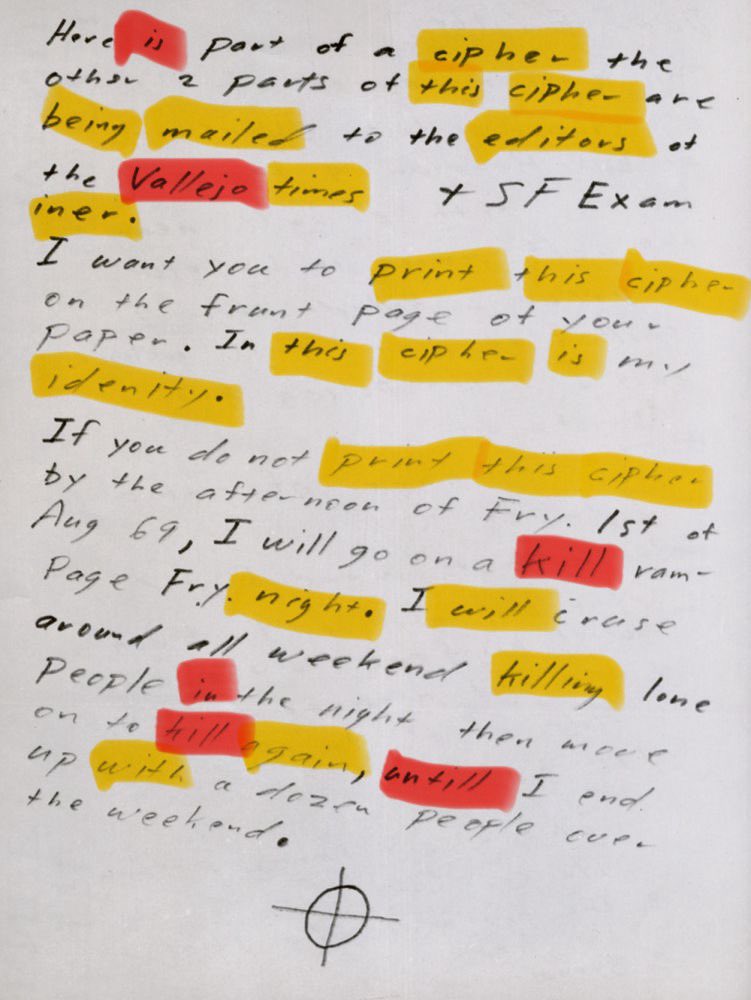 Here is part of a cipher the
other 2 parts of this cipher are
being mailed to the editors of
the Vallejo times + SF Exam
iner.
I want you to print this cipher
on the frunt page of your
paper. In this cipher is my
idenity.
If you do not print this cipher
by the afternoon of Fry. 1st of
Aug 69, I will go on a kill ram-
Page Fry. night. I will cruse
around all weekend killing lone
people in the night then move
on to kill again, untill I end
up with a dozen people over
the weekend.